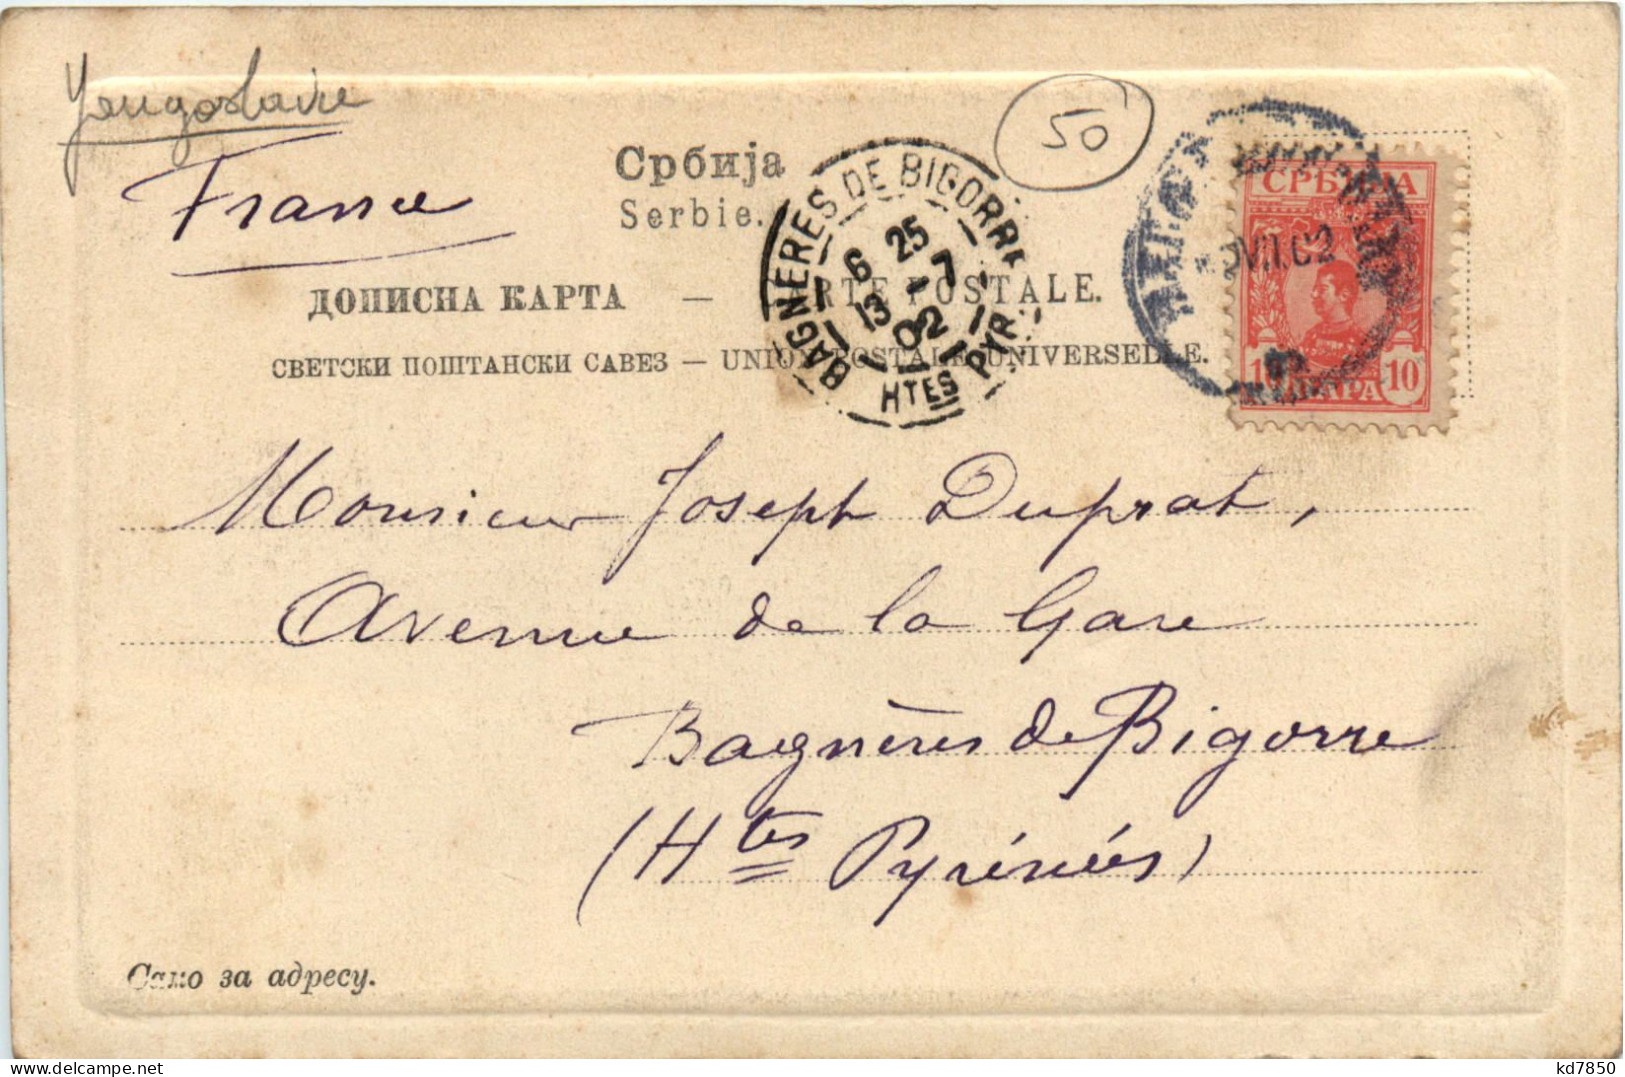 Yougoslavie
50
France
Србија
Serbie.
BAGNERES DE BIGORRE
6 25
13 7
02
HTES PYR
СРБИЈА
VII.02
10 ПАРА 10
ДОПИСНА КАРТА — CARTE POSTALE.
СВЕТСКИ ПОШТАНСКИ САВЕЗ — UNION POSTALE UNIVERSELLE.
Monsieur Joseph Duprat,
Avenue de la Gare
Bagnères de Bigorre
(Htes Pyrénées)
Само за адресу.
kd7850